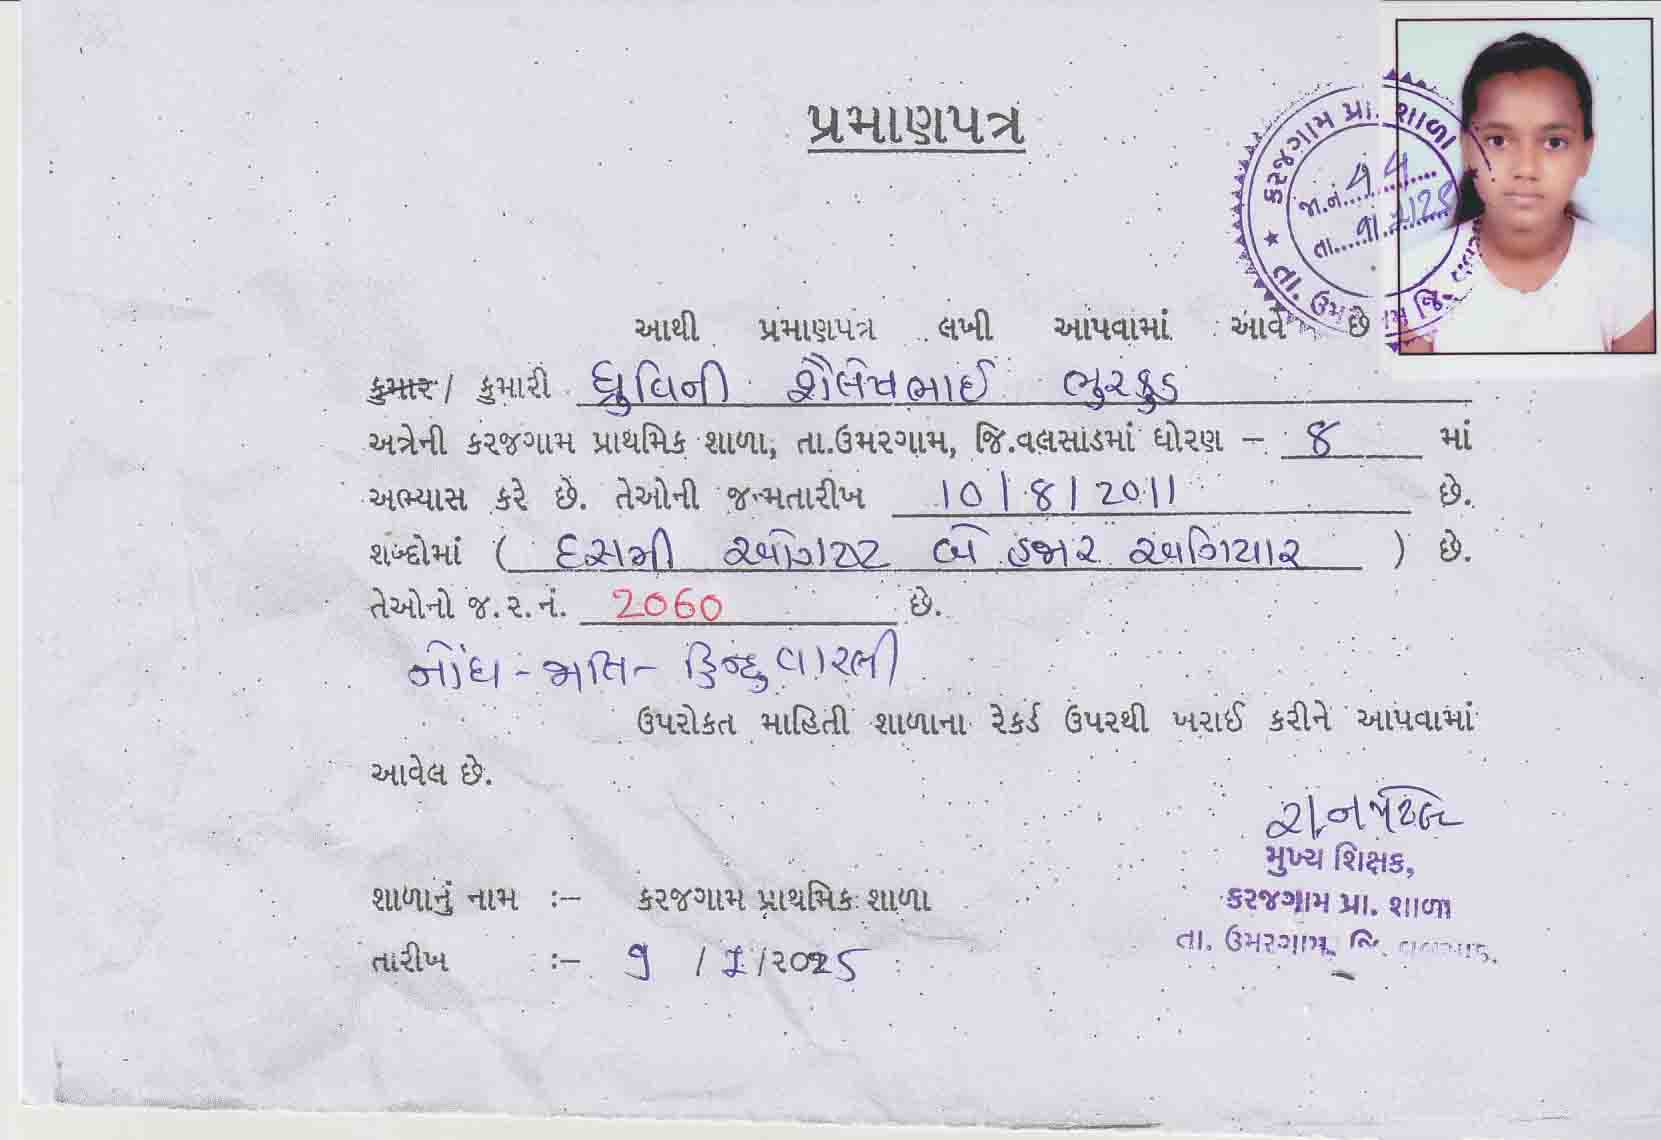 પ્રમાણપત્ર
કરજગામ પ્રા. શાળા
જા.નં.
તા.
આથી પ્રમાણપત્ર લખી આપવામાં આવે છે
કુમાર / કુમારી ધ્રુવિની શૈલેષભાઈ ભુરકુડ
અત્રેની કરજગામ પ્રાથમિક શાળા, તા.ઉમરગામ, જિ.વલસાડમાં ધોરણ – 8 માં
અભ્યાસ કરે છે. તેઓની જન્મતારીખ 10/8/2011 છે.
શબ્દોમાં ( દસમી ઓગષ્ટ બે હજાર અગિયાર ) છે.
તેઓનો જ.ર.નં. 2060 છે.
નોંધ - જાતિ - હિન્દુ વારલી
ઉપરોકત માહિતી શાળાના રેકર્ડ ઉપરથી ખરાઈ કરીને આપવામાં
આવેલ છે.
મુખ્ય શિક્ષક,
શાળાનું નામ :– કરજગામ પ્રાથમિક શાળા
કરજગામ પ્રા. શાળા
તા. ઉમરગામ, જિ. વલસાડ.
તારીખ :– ૧ / ૨ / ૨૦૨૫